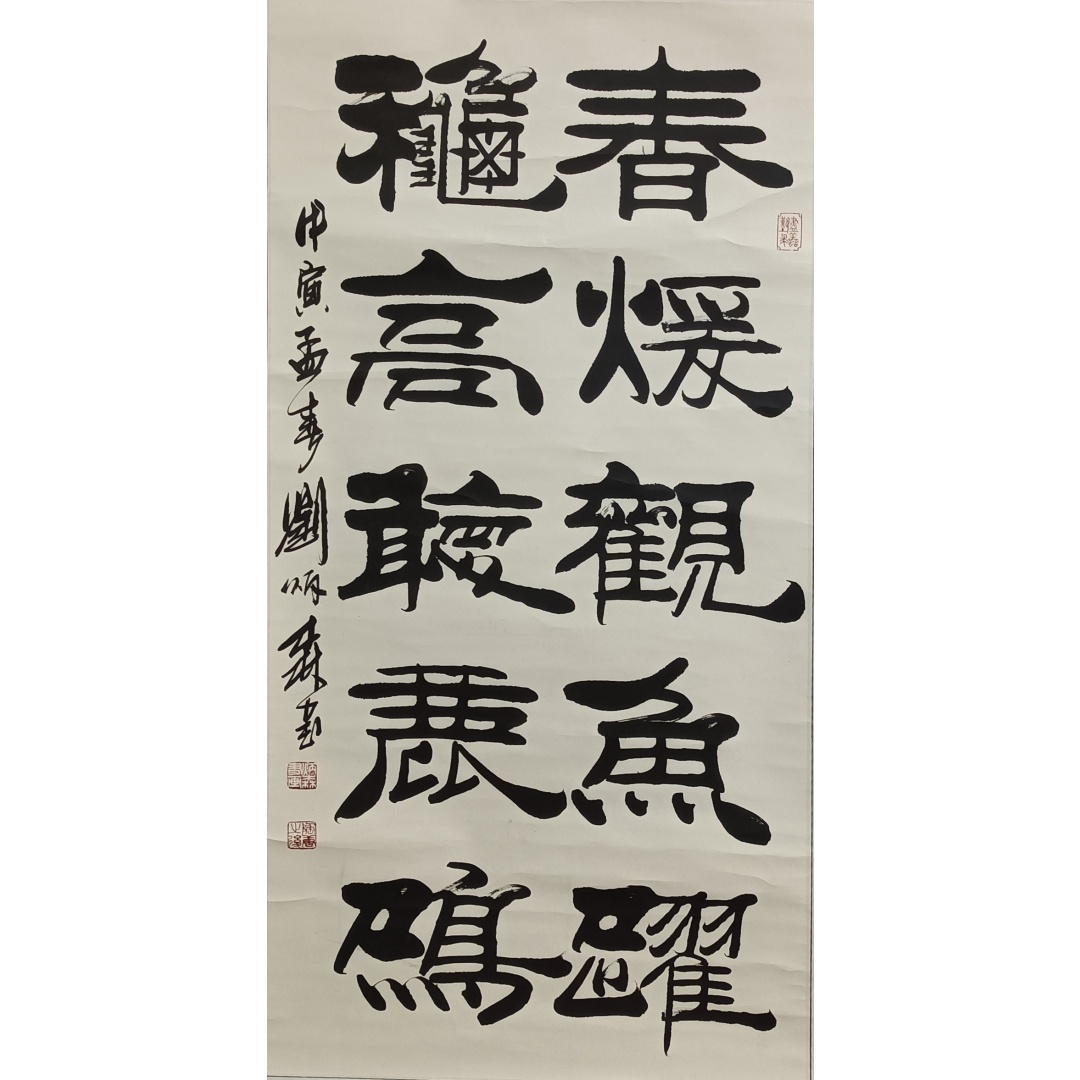 春煖觀魚躍
龝高聼鹿鳴
甲寅孟春劉炳森書